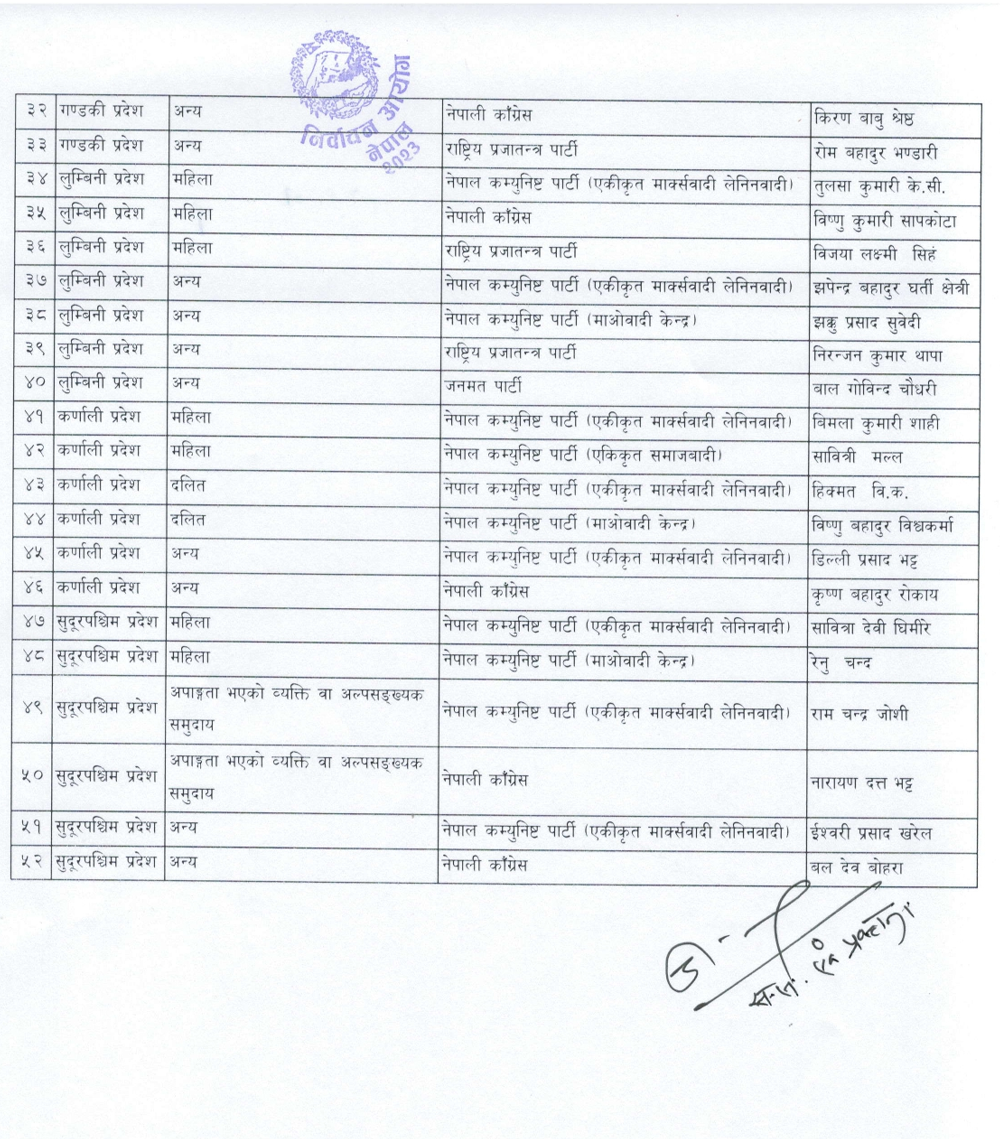 निर्वाचन आयोग
नेपाल
२०२३
३२ गण्डकी प्रदेश अन्य नेपाली काँग्रेस किरण बाबु श्रेष्ठ
३३ गण्डकी प्रदेश अन्य राष्ट्रिय प्रजातन्त्र पार्टी रोम बहादुर भण्डारी
३४ लुम्बिनी प्रदेश महिला नेपाल कम्युनिष्ट पार्टी (एकीकृत मार्क्सवादी लेनिनवादी) तुलसा कुमारी के.सी.
३५ लुम्बिनी प्रदेश महिला नेपाली काँग्रेस विष्णु कुमारी सापकोटा
३६ लुम्बिनी प्रदेश महिला राष्ट्रिय प्रजातन्त्र पार्टी विजया लक्ष्मी सिहं
३७ लुम्बिनी प्रदेश अन्य नेपाल कम्युनिष्ट पार्टी (एकीकृत मार्क्सवादी लेनिनवादी) झपेन्द्र बहादुर घर्ती क्षेत्री
३८ लुम्बिनी प्रदेश अन्य नेपाल कम्युनिष्ट पार्टी (माओवादी केन्द्र) झक्कु प्रसाद सुवेदी
३९ लुम्बिनी प्रदेश अन्य राष्ट्रिय प्रजातन्त्र पार्टी निरन्जन कुमार थापा
४० लुम्बिनी प्रदेश अन्य जनमत पार्टी बाल गोविन्द चौधरी
४१ कर्णाली प्रदेश महिला नेपाल कम्युनिष्ट पार्टी (एकीकृत मार्क्सवादी लेनिनवादी) बिमला कुमारी शाही
४२ कर्णाली प्रदेश महिला नेपाल कम्युनिष्ट पार्टी (एकिकृत समाजबादी) सावित्री मल्ल
४३ कर्णाली प्रदेश दलित नेपाल कम्युनिष्ट पार्टी (एकीकृत मार्क्सवादी लेनिनवादी) हिक्मत वि.क.
४४ कर्णाली प्रदेश दलित नेपाल कम्युनिष्ट पार्टी (माओवादी केन्द्र) विष्णु बहादुर विश्वकर्मा
४५ कर्णाली प्रदेश अन्य नेपाल कम्युनिष्ट पार्टी (एकीकृत मार्क्सवादी लेनिनवादी) डिल्ली प्रसाद भट्ट
४६ कर्णाली प्रदेश अन्य नेपाली काँग्रेस कृष्ण बहादुर रोकाय
४७ सुदूरपश्चिम प्रदेश महिला नेपाल कम्युनिष्ट पार्टी (एकीकृत मार्क्सवादी लेनिनवादी) सावित्रा देवी घिमीरे
४८ सुदूरपश्चिम प्रदेश महिला नेपाल कम्युनिष्ट पार्टी (माओवादी केन्द्र) रेनु चन्द
४९ सुदूरपश्चिम प्रदेश अपाङ्गता भएको व्यक्ति वा अल्पसङ्ख्यक
समुदाय नेपाल कम्युनिष्ट पार्टी (एकीकृत मार्क्सवादी लेनिनवादी) राम चन्द्र जोशी
५० सुदूरपश्चिम प्रदेश अपाङ्गता भएको व्यक्ति वा अल्पसङ्ख्यक
समुदाय नेपाली काँग्रेस नारायण दत्त भट्ट
५१ सुदूरपश्चिम प्रदेश अन्य नेपाल कम्युनिष्ट पार्टी (एकीकृत मार्क्सवादी लेनिनवादी) ईश्वरी प्रसाद खरेल
५२ सुदूरपश्चिम प्रदेश अन्य नेपाली काँग्रेस बल देव बोहरा